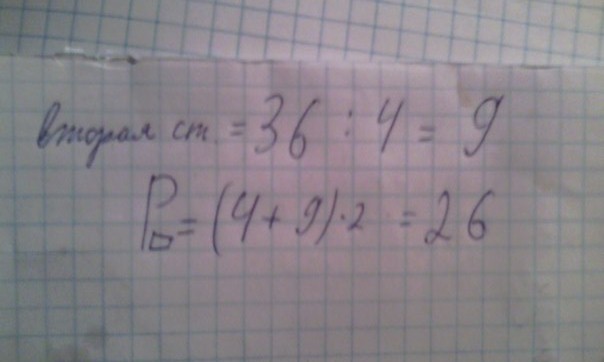 вторая ст. = 36 : 4 = 9
P▭ = (4 + 9) · 2 = 26